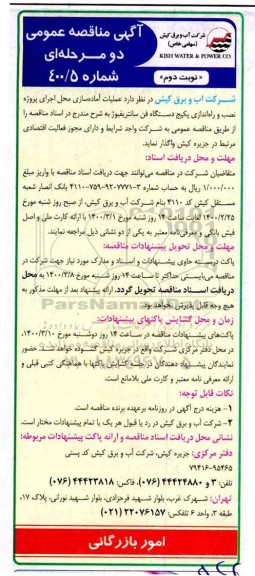 شرکت آب و برق کیش
(سهامی خاص)
KISH WATER & POWER CO.
آگهی مناقصه عمومی
دو مرحله‌ای
شماره ۴۰۰/۵
«نوبت دوم»
شرکت آب و برق کیش در نظر دارد عملیات آماده‌سازی محل اجرای پروژه
نصب و راه‌اندازی پکیج دستگاه فن سانتریفیوژ به شرح مندرج در اسناد مناقصه را
از طریق مناقصه عمومی به شرکت واجد شرایط و دارای مجوز فعالیت اقتصادی
مرتبط در جزیره کیش واگذار نماید.
مهلت و محل دریافت اسناد:
متقاضیان شرکت در مناقصه می‌توانند جهت دریافت اسناد مناقصه با واریز مبلغ
۱/۰۰۰/۰۰۰ ریال به حساب شماره ۳-۹۲۰۷۷۷۱-۷۵۹-۴۱۱۰ بانک انصار شعبه
مستقل کیش کد ۴۱۱۰ بنام شرکت آب و برق کیش، از صبح روز شنبه مورخ
۱۴۰۰/۲/۲۵ لغایت ساعت ۱۴ روز شنبه مورخ ۱۴۰۰/۳/۱ با ارائه کارت ملی و اصل
فیش بانکی و معرفی‌نامه معتبر به یکی از دو نشانی ذیل مراجعه نمایند.
مهلت و محل تحویل پیشنهادات مناقصه:
پاکت دربسته حاوی پیشنهادات و اسناد و مدارک مورد نیاز جهت شرکت در
مناقصه می‌بایستی حداکثر تا ساعت ۱۴ روز شنبه مورخ ۱۴۰۰/۳/۸ به محل
دریافت اسناد مناقصه تحویل گردد. ارائه پیشنهاد بعد از مهلت مذکور به
هیچ وجه قابل پذیرش نخواهد بود.
زمان و محل گشایش پاکتهای پیشنهادات:
پاکت‌های پیشنهادات مناقصه در ساعت ۱۴ روز دوشنبه مورخ ۱۴۰۰/۳/۱۰
در محل دفتر مرکزی شرکت واقع در جزیره کیش گشوده خواهد شد. حضور
نمایندگان پیشنهاد دهندگان در جلسه گشایش پاکتها با هماهنگی کتبی قبلی و
ارائه معرفی نامه معتبر و کارت ملی بلامانع است.
نکات قابل توجه:
۱- هزینه درج آگهی در روزنامه برعهده برنده مناقصه است.
۲- شرکت آب و برق کیش در رد یا قبول هر یک یا تمام پیشنهادات مختار است.
نشانی محل دریافت اسناد مناقصه و ارائه پاکت پیشنهادات مربوطه:
دفتر مرکزی: جزیره کیش، شرکت آب و برق کیش کد پستی
۷۹۴۱۶-۹۵۴۶۵
تلفن: ۳ و ۴۴۴۲۴۸۸۰ (۰۷۶)، فاکس: ۴۴۴۲۳۸۱۸ (۰۷۶)
تهران: شهرک غرب، بلوار شهید فرحزادی، بلوار شهید نورانی، پلاک ۱۷،
طبقه ۳، واحد ۶ تلفکس: ۲۲۰۷۶۱۵۷ (۰۲۱)
امور بازرگانی